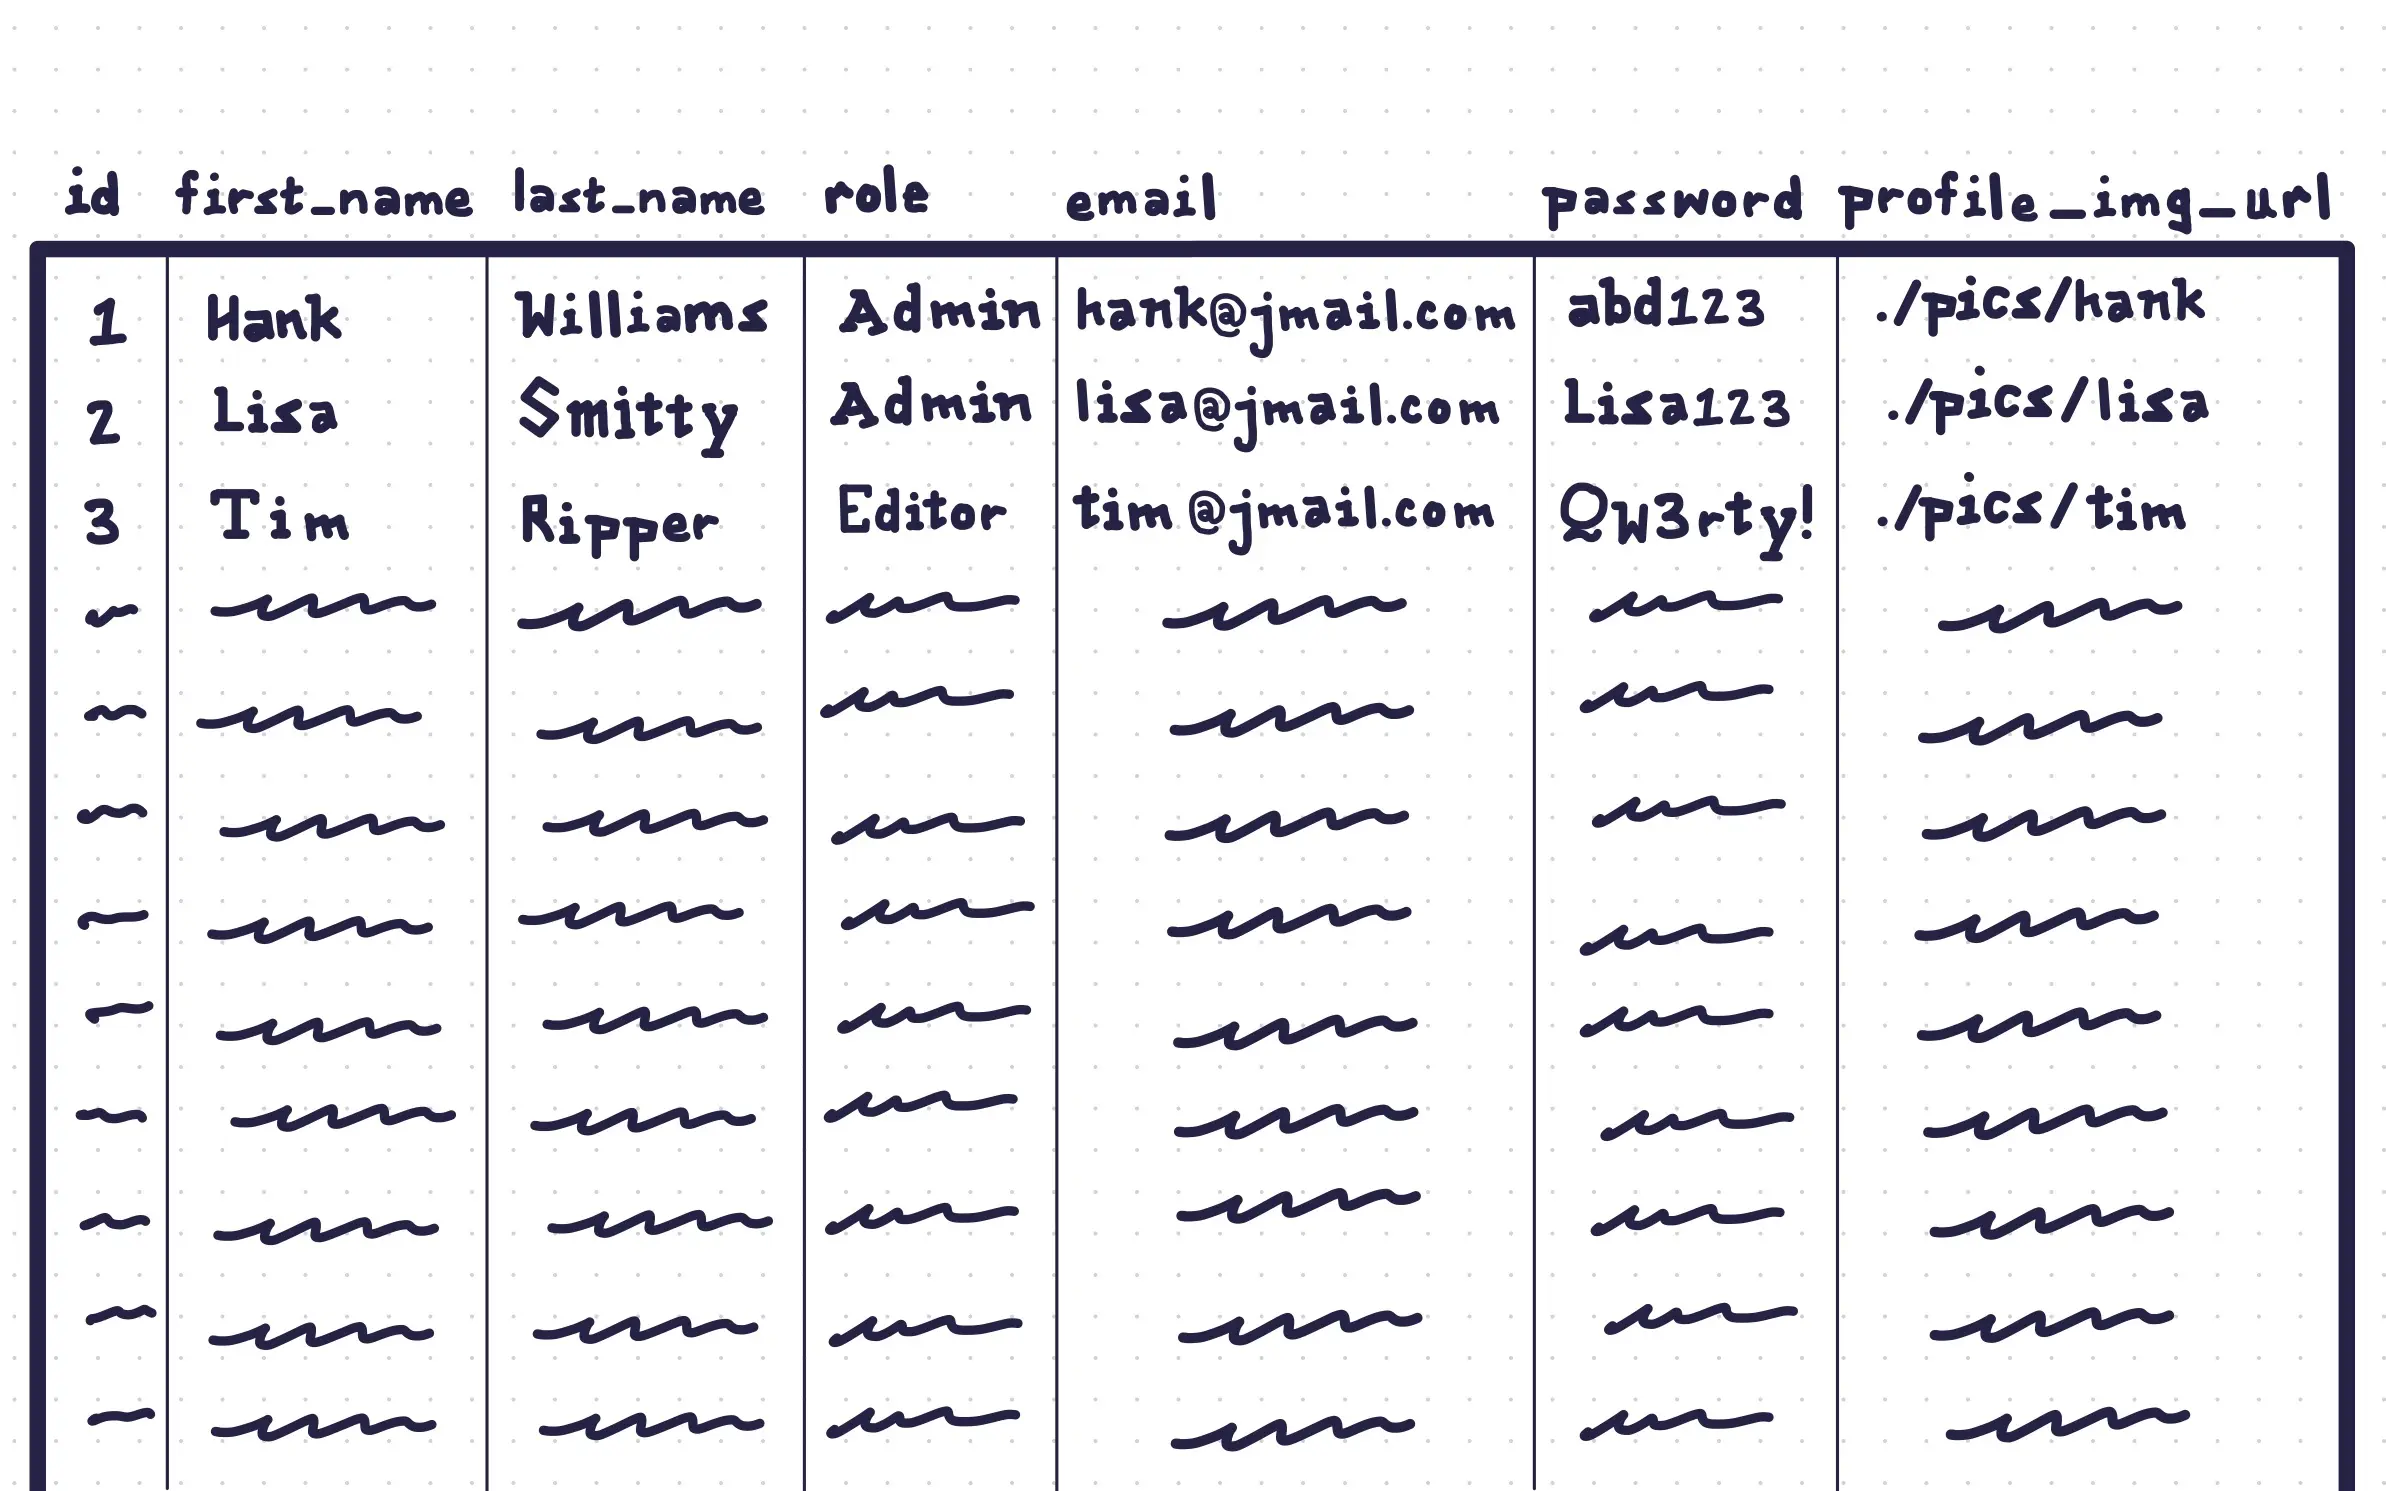 id first_name last_name role email password profile_img_url
1 Hank Williams Admin hank@jmail.com abd123 ./pics/hank
2 Lisa Smitty Admin lisa@jmail.com Lisa123 ./pics/lisa
3 Tim Ripper Editor tim@jmail.com QW3rty! ./pics/tim